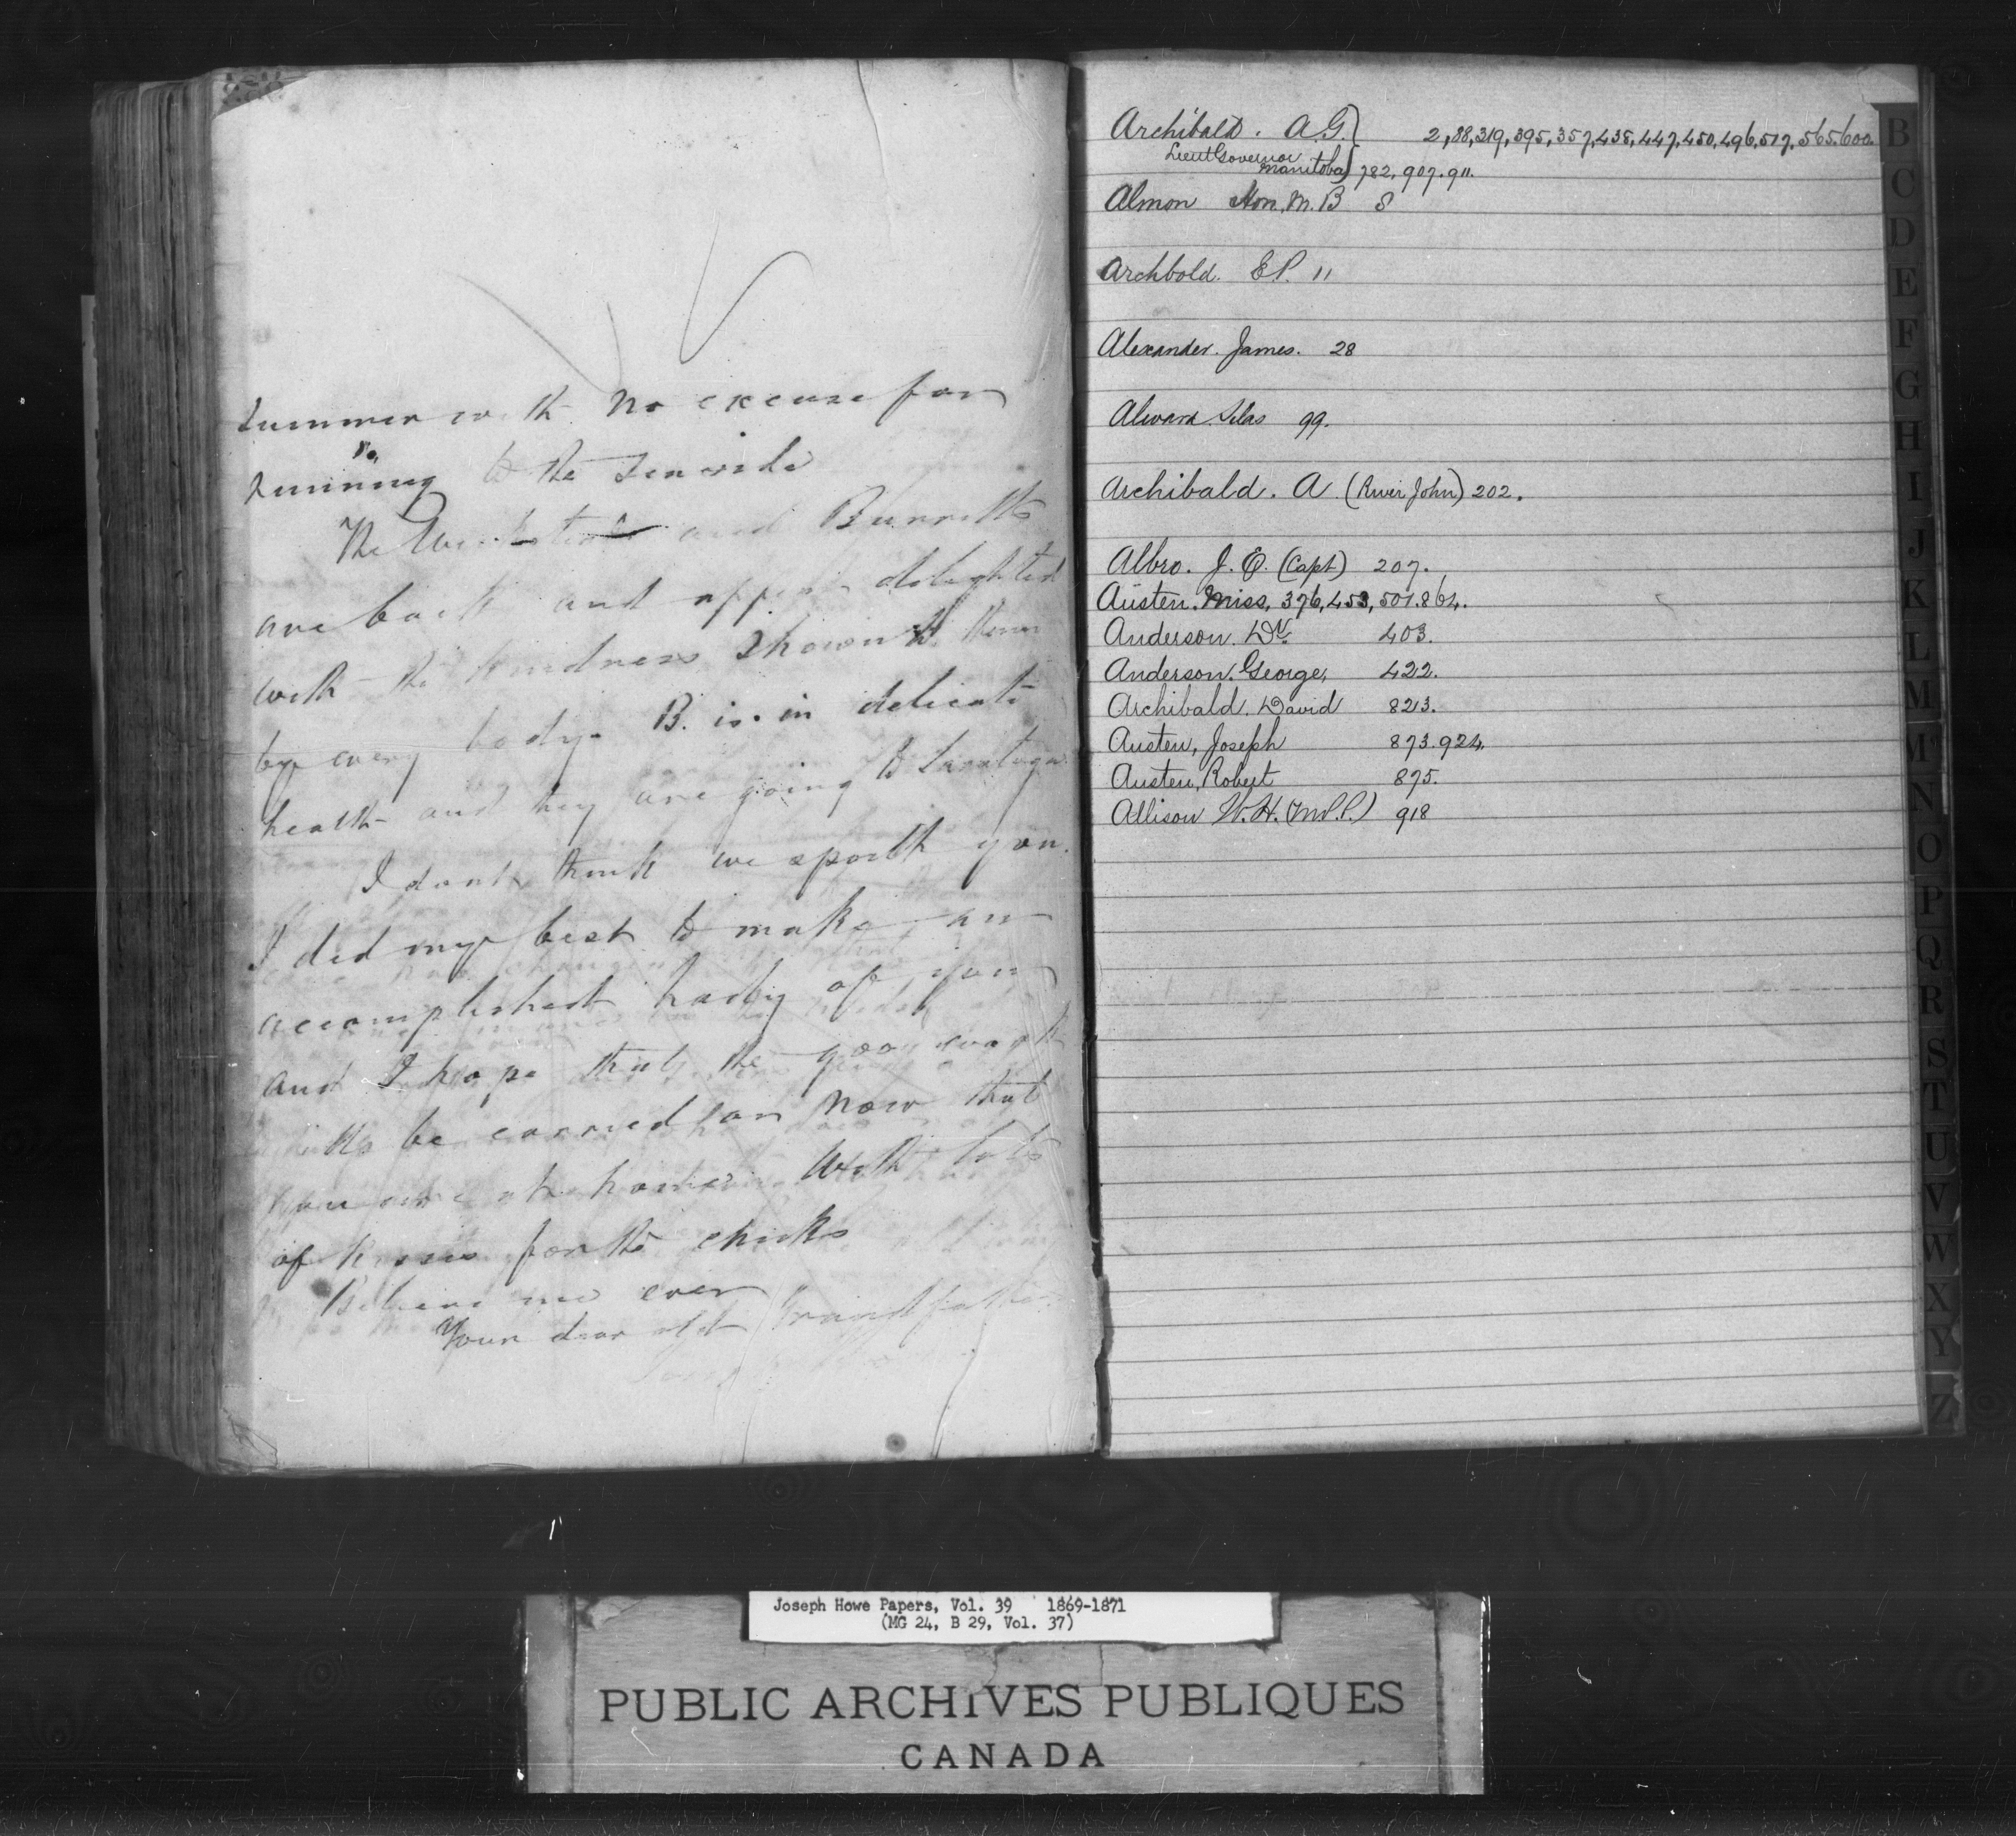 summer with no excuse for
running to the sea side
The and Burretts
are back and appear delighted
with the kindness shown to them
by every body. B. is in delicate
health and they are going to Saratoga
I dont think we spoilt you.
I did my best to make an
accomplished lady of you
and I hope that the good work
will be carried on now that
you are at home. With lots
of kisses for the chicks
Believe me ever
Your dear old Grandfather
Archibald. A.G.} 2,88,319,395,357,438,447,450,496,517,565.600.
Lieut Governor
Manitoba} 782,907.911.
Almon Hon. M.B 8
Archbold. E.P. 11
Alexander. James. 28
Alward Silas 99.
Archibald. A. (River John) 202.
Albro. J. E. (Capt) 207.
Austen. Miss, 376,453,501.864.
Anderson. Dr. 403.
Anderson. George, 422.
Archibald. David 823.
Austen, Joseph 873.924.
Austen, Robert 875.
Allison W. H. (M.P.) 918
B
C
D
E
F
G
H
I
J
K
L
M
Mc
N
O
P
Q
R
S
T
U
V
W
X
Y
Z
Joseph Howe Papers, Vol. 39 1869-1871
(MG 24, B 29, Vol. 37)
PUBLIC ARCHIVES PUBLIQUES
CANADA